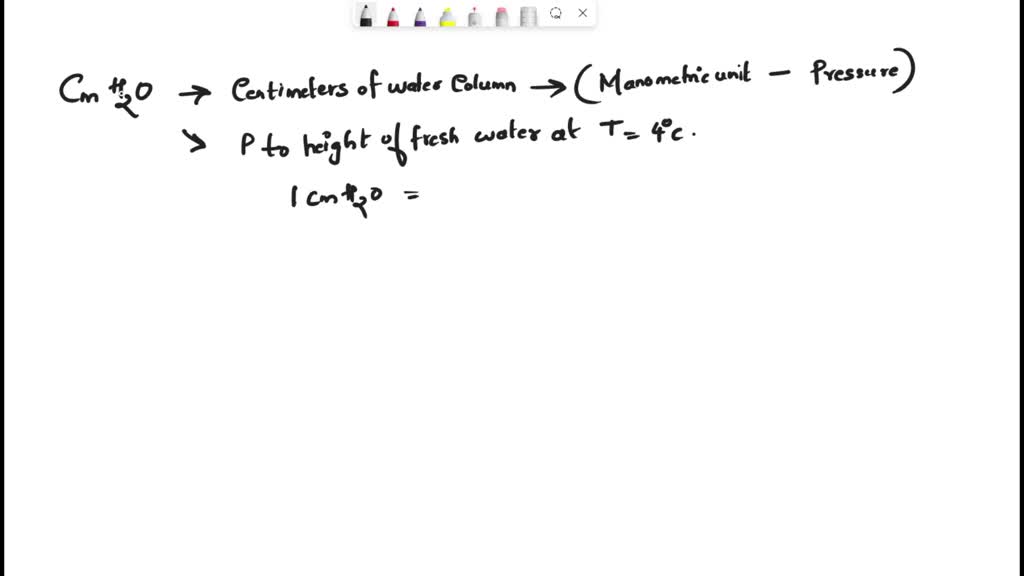 Cm H2O → Centimeters of water Column → (Manometric unit - Pressure)
↘ P to height of fresh water at T = 4°c.
1 cm H2O =